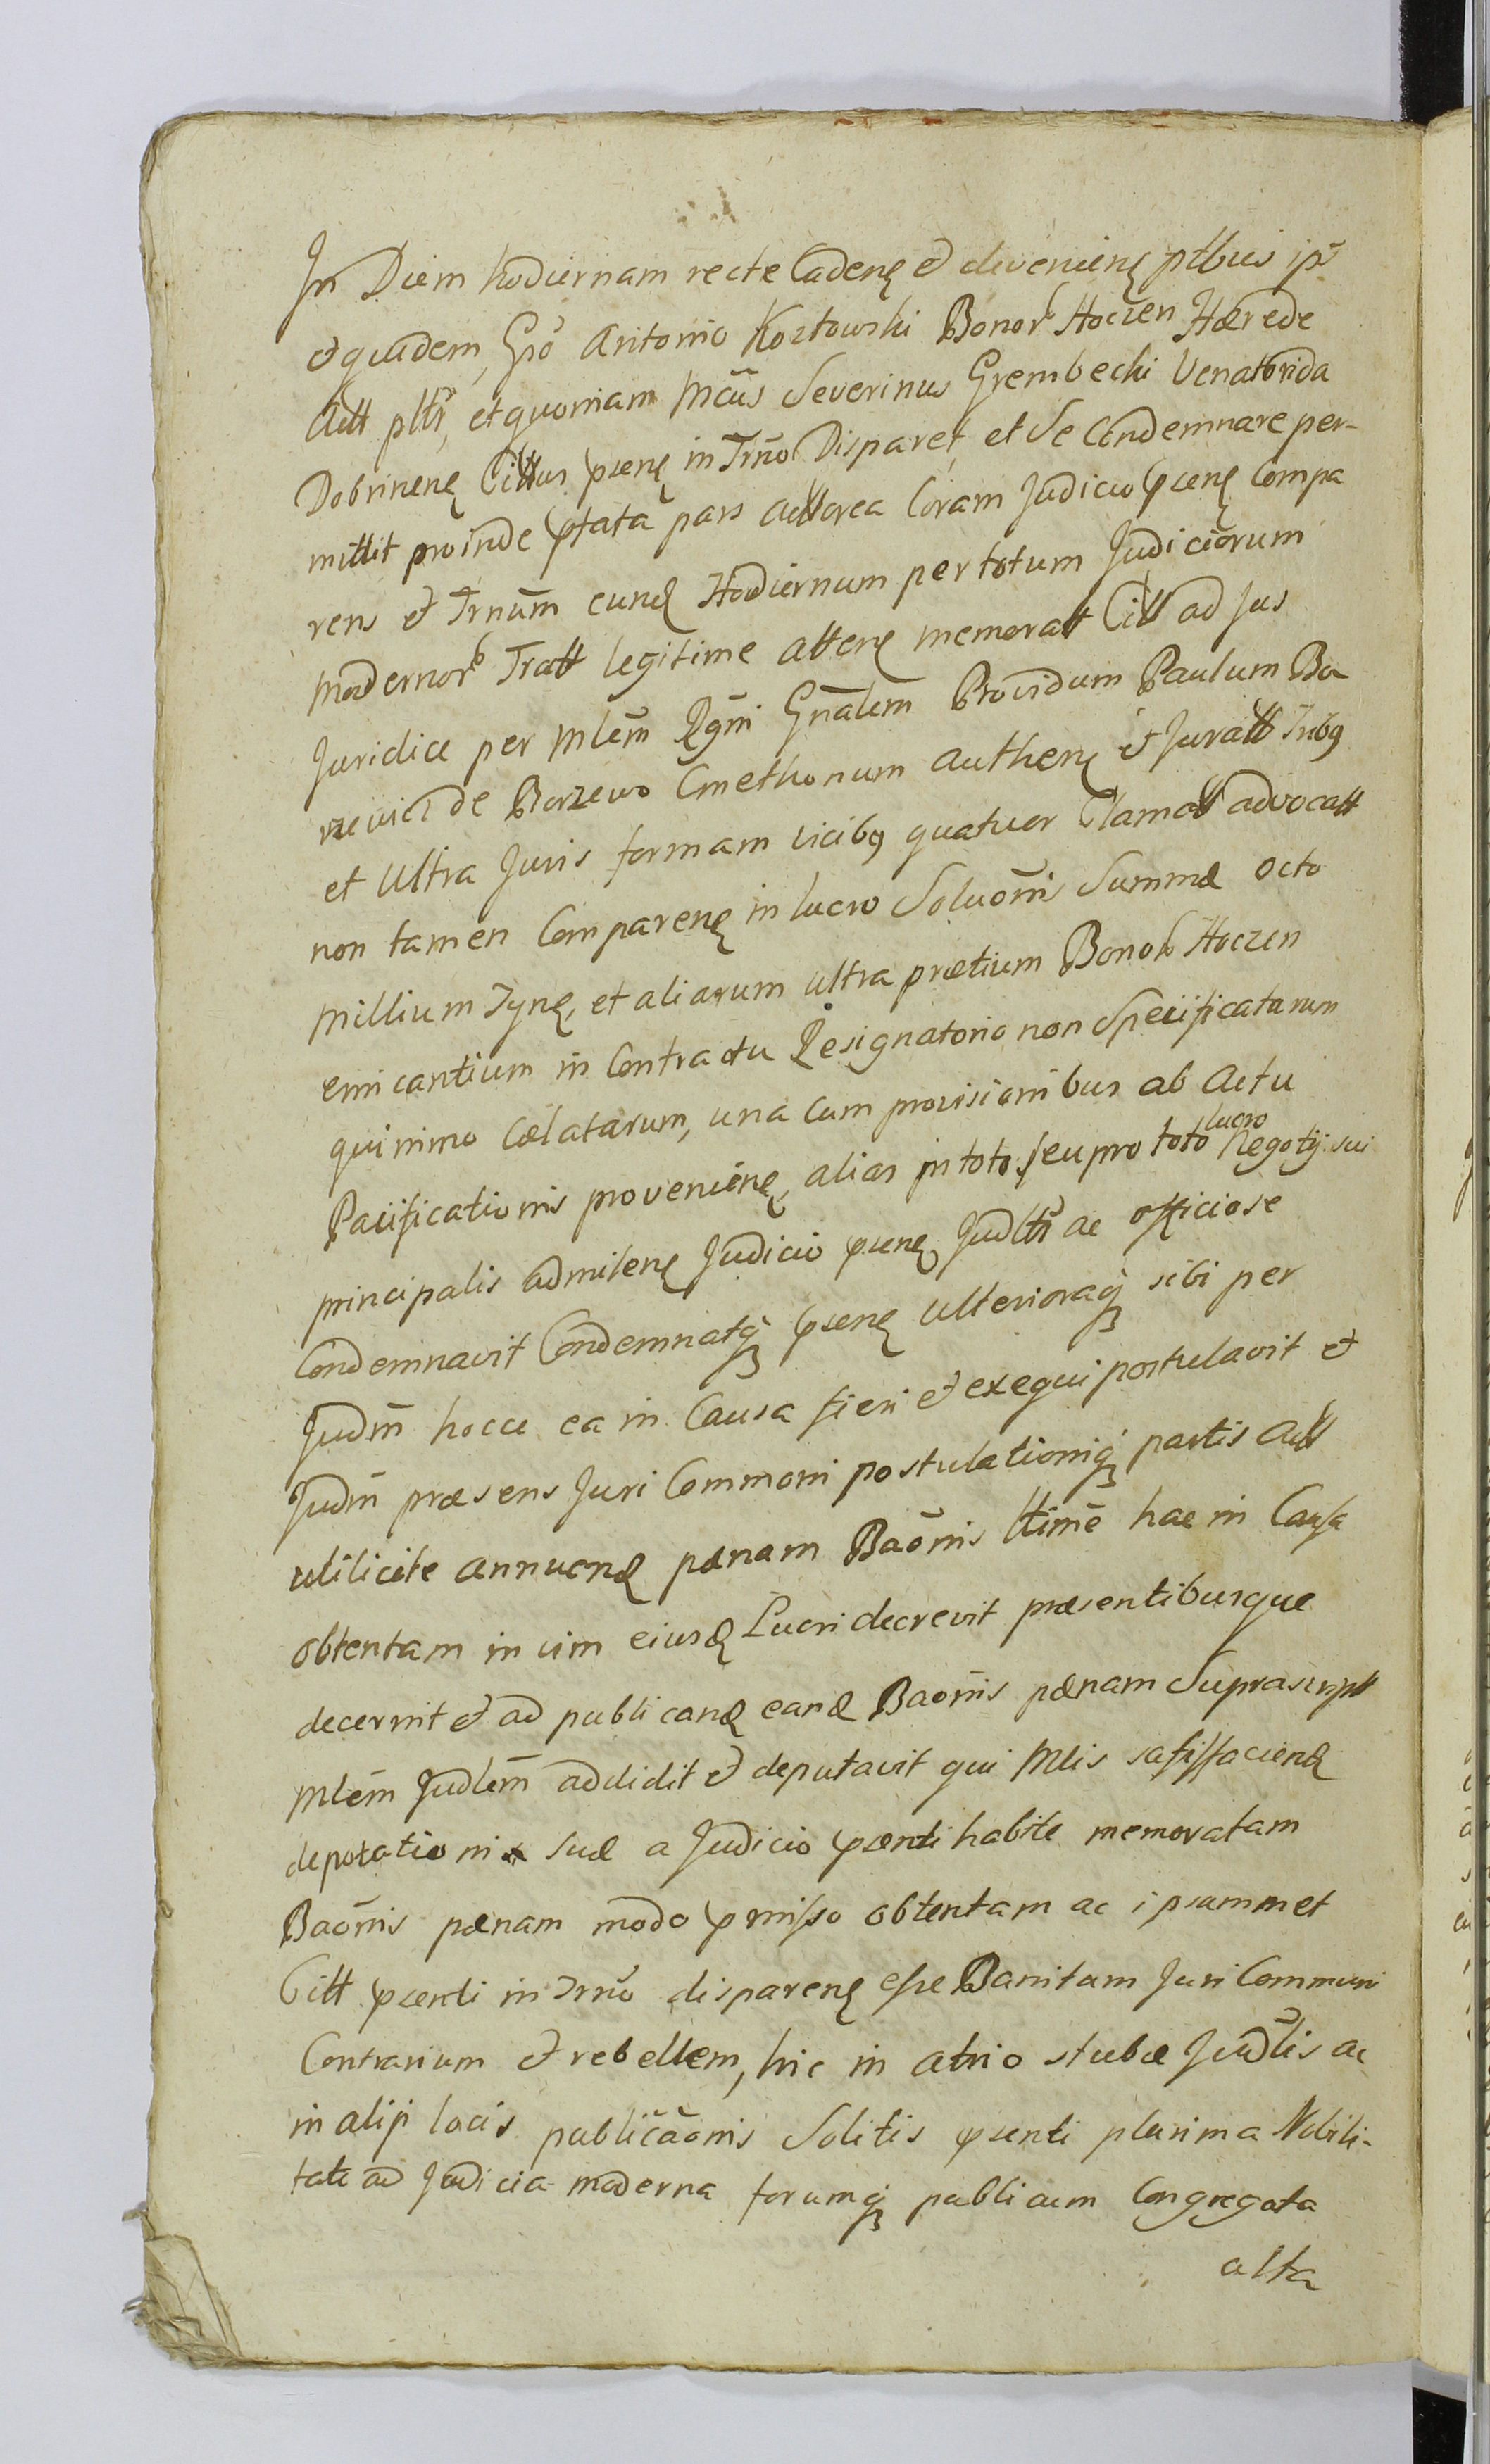 In Diem hodiernam recte Cadenę et devenienę ptbus ip̃
et quidem, Gso Antonio Kozłowski Bonor Hoczen Hærede
Actt pltr, et quoniam Mcus Severinus Grembecki Venatorida
Dobrinenę Cittus psenę in Trno Disparet, et se Condemnare per-
mittit proinde ptata pars acttorea Coram Judicio psenę Compa
rens et Trnum eund Hodiernum per totum Judiciorum
modernor Tratt legitime attenę memoratt Citt ad Jus
Juridice per Mlem Rgni Gnalem Providum Paulum Ba
de Borzewo Cmethonum authenę et Juratt Tribq
et Ultra Juris formam vicibq quatuor Clamatt advocatt
non tamen Comparenę in lucro Soluonis Summæ octo
millium Tynę, et aliarum ultra prætium Bonor Hoczen
emicantium in Contractu Resignatorio non Specificatarum
quinimo Cælatarum, una cum provisionibus ab Actu
Pacificationis provenienę, alias in toto seu pro toto lucro Negotij sui
principalis admitenę Judicio psenę Judltr ac officiose
Condemnavit Condemnatq psenę ulterioraq sibi per
Judm hocce ea in Causa fieri et exequi postulavit et
Judm præsens Juri Commoni postulationiq partis Actt
utilicite annuend pænam Baonis ttime hac in Causa
obtentam in vim eiusd Lucri decrevit præsentibusque
decernit et ad publicand eand Baonis pænam Suprascriptt
Mlem Judlem addidit et deputavit qui Mlis satisfaciend
deputationi suæ a Judicio psenti habite memoratam
Baonis pænam modo pmisso obtentam ac ipsummet
Citt psenti in Trno disparenę esse Banitum Juri Communi
Contrarium et rebellem, hic in atrio stubæ Judlis ac
in alijs locis publicaonis Solitis psenti plurima Nobili-
tate ad Judicia moderna forumq publicum Congregata
alta